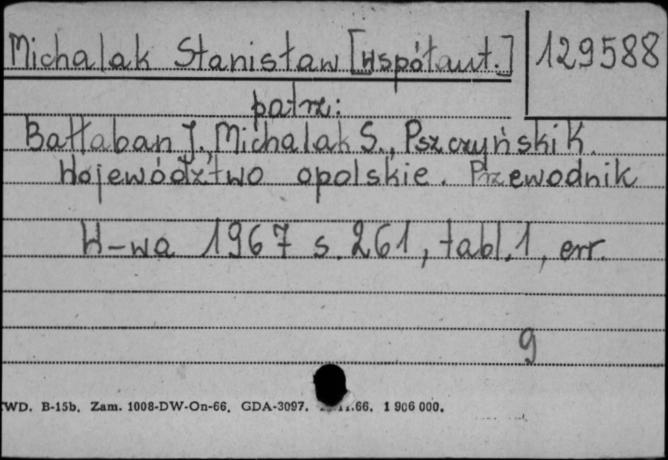 Michalak Stanisław [Współaut.] 129588
patrz:
Bałłaban J., Michalak S., Pszczyński K.
Województwo opolskie. Przewodnik
W-wa 1967 s. 261, tabl. 1, err.
9
WD. B-15b. Zam. 1008-DW-On-66. GDA-3097. .66. 1 906 000.